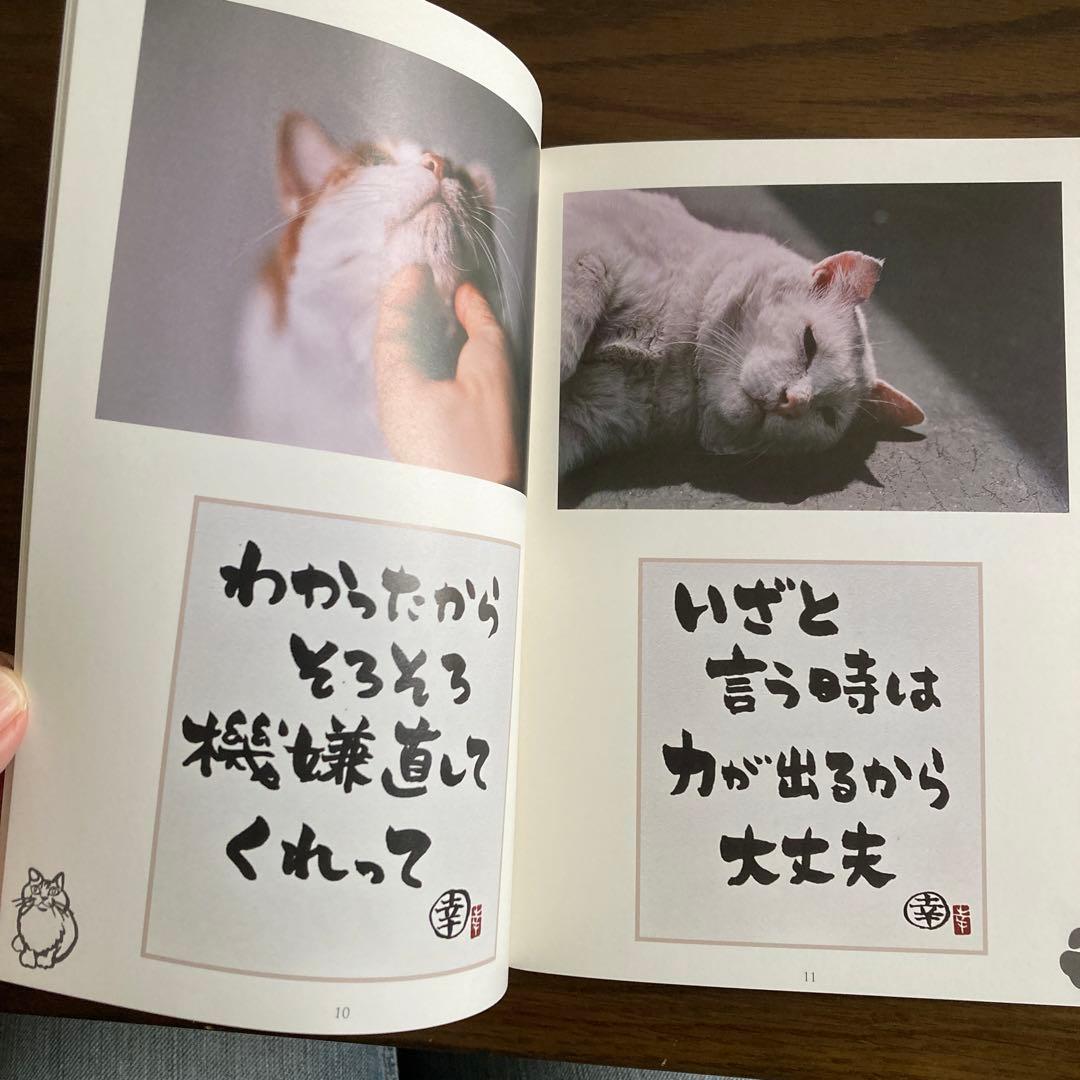 わかったから
そろそろ
機嫌直して
くれって
幸
幸
10
いざと
言う時は
力が出るから
大丈夫
幸
幸
11